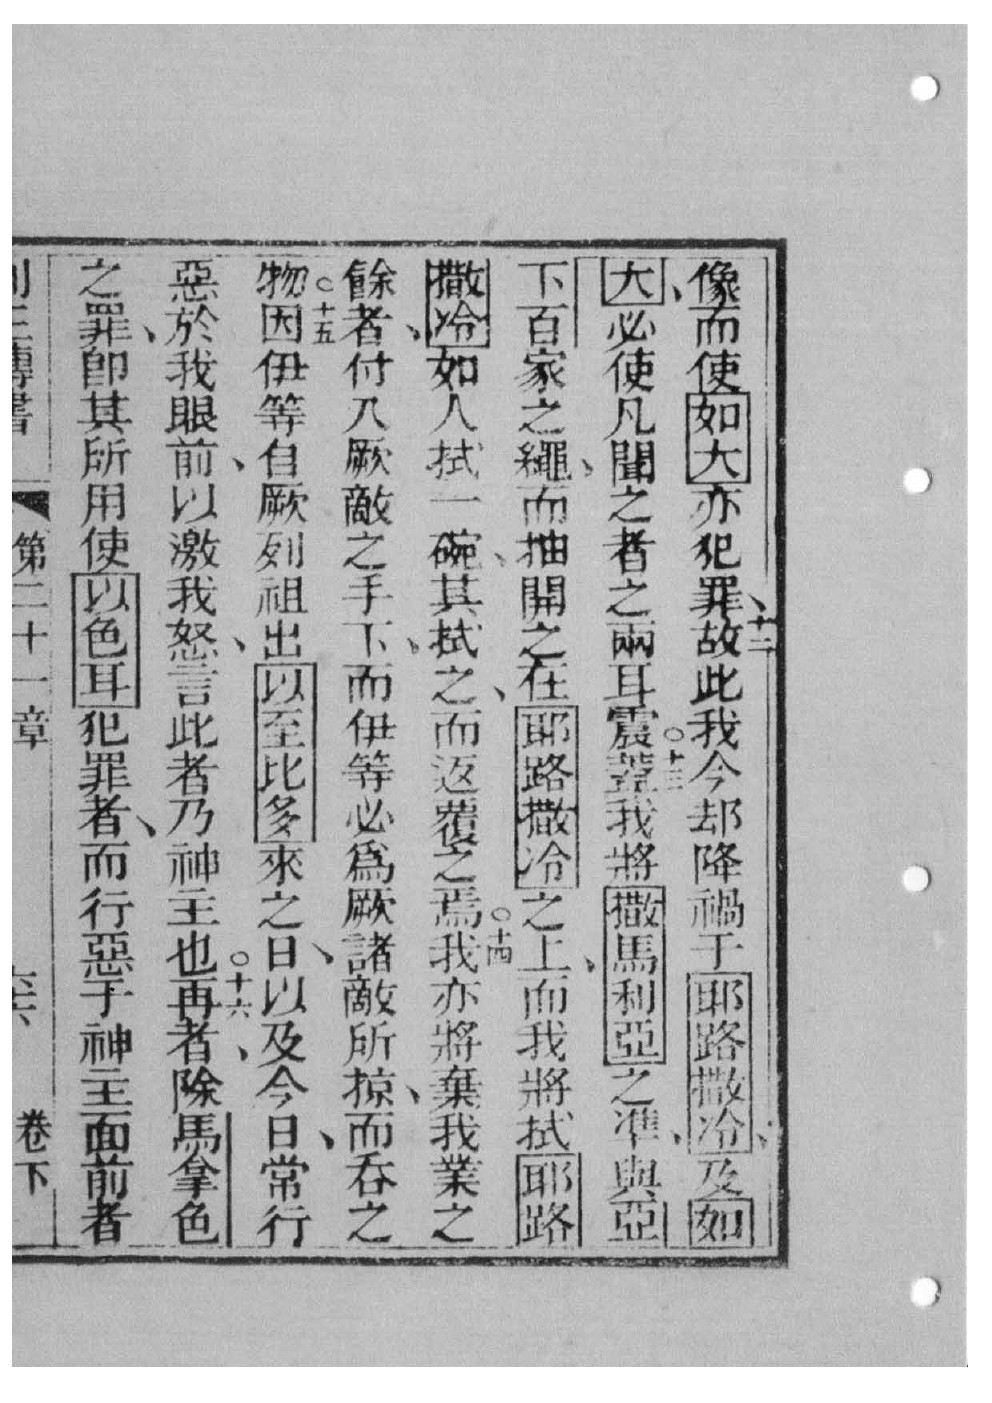 像而使如大亦犯罪、十二故此我今却降禍于耶路撒冷、及如
大、必使凡聞之者之兩耳震○十三蓋我將撒馬利亞之準、與亞
下百家之繩、而抽開之在耶路撒冷之上、而我將拭耶路
撒冷如人拭一碗、其拭之、而返覆之焉○十四我亦將棄我業之
餘者、付入厥敵之手下、而伊等必爲厥諸敵所掠、而呑之
○十五物因伊等自厥列祖出以至比多來之日、以及今日、常行
惡於我眼前、以激我怒、言此者乃神主也○十六再者、除馬拿色
之罪、卽其所用使以色耳犯罪者、而行惡于神主面前者
列王傳書 第二十一章 六六 卷下